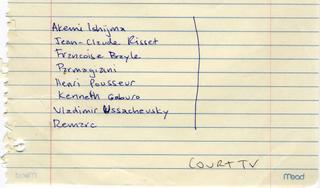 Akemi Ishijma
Jean-Claude Risset
Francoise Brayle
Parmagiani
Henri Pousseur
Kenneth Gaburo
Vladimir Ussachevsky
Remarc
COURT TV
Mead